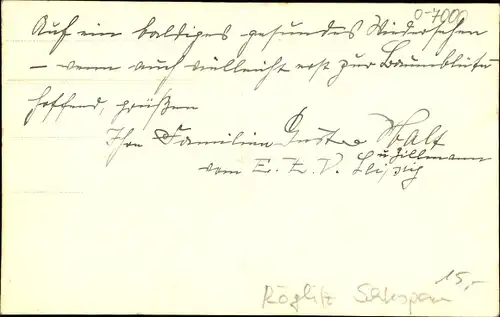 0-7000
Auf ein baldiges gesundes Wiedersehen
– wenn auch vielleicht erst zur Baumblüte
hoffend, grüßen
Ihre Familien Gustav Walt
u. Zillmann
vom E. Z. V. Leipzig
15,-
Röglitz